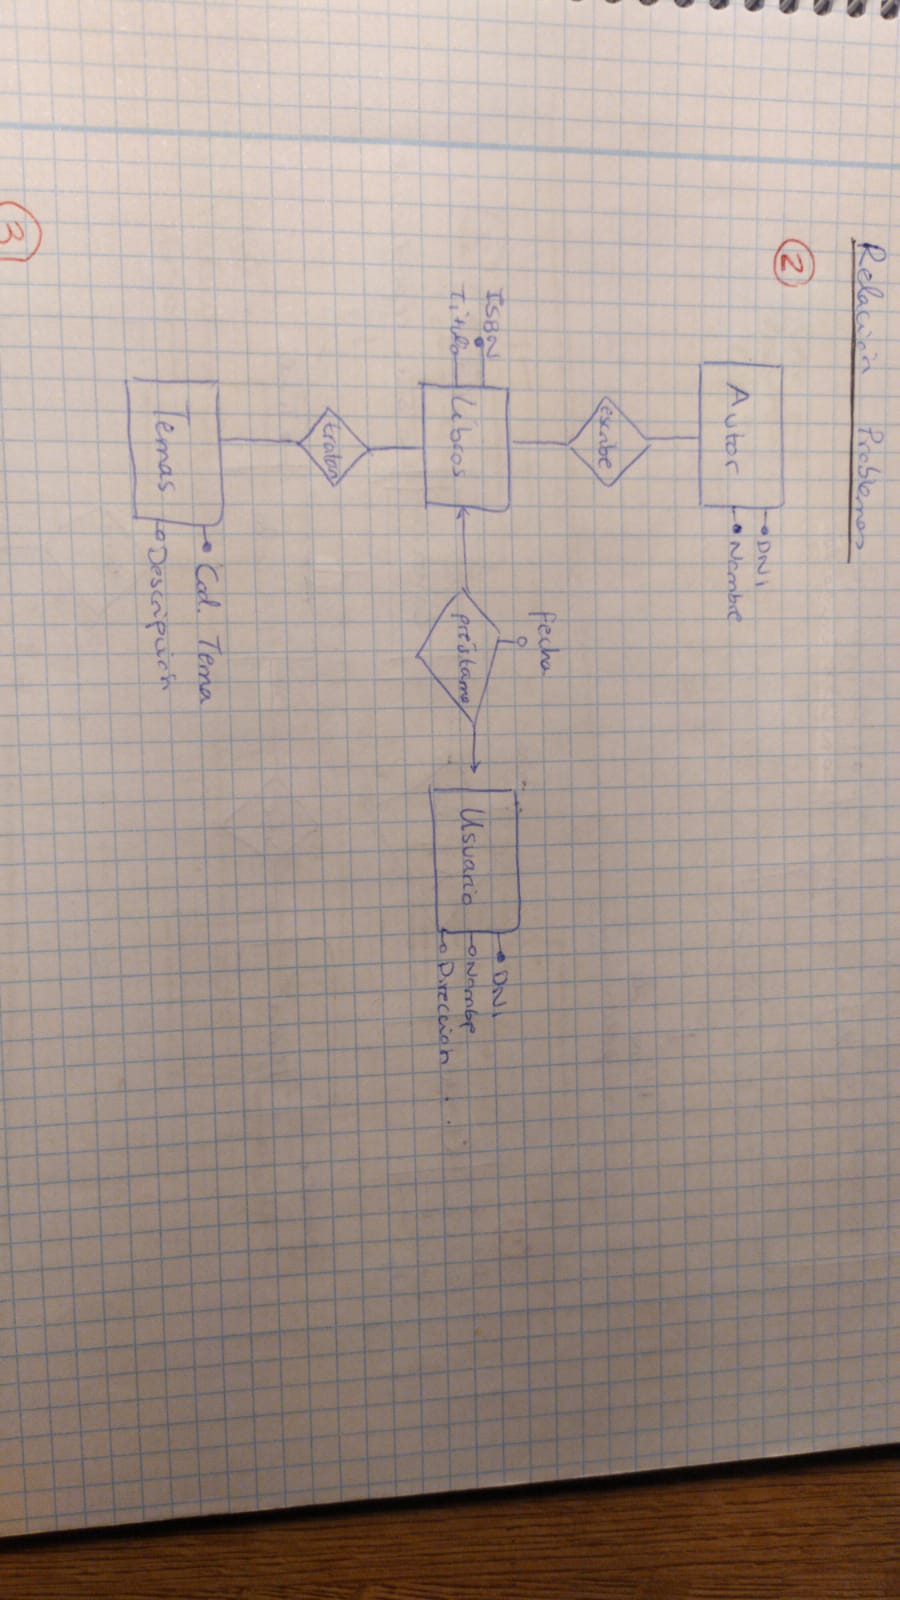 Relación Problemas
2
Autor
DNI
Nombre
escribe
fecha
ISBN
Título
Libros
préstamo
Usuario
DNI
Nombre
Dirección
tratan
Temas
Cod. Tema
Descripción
3